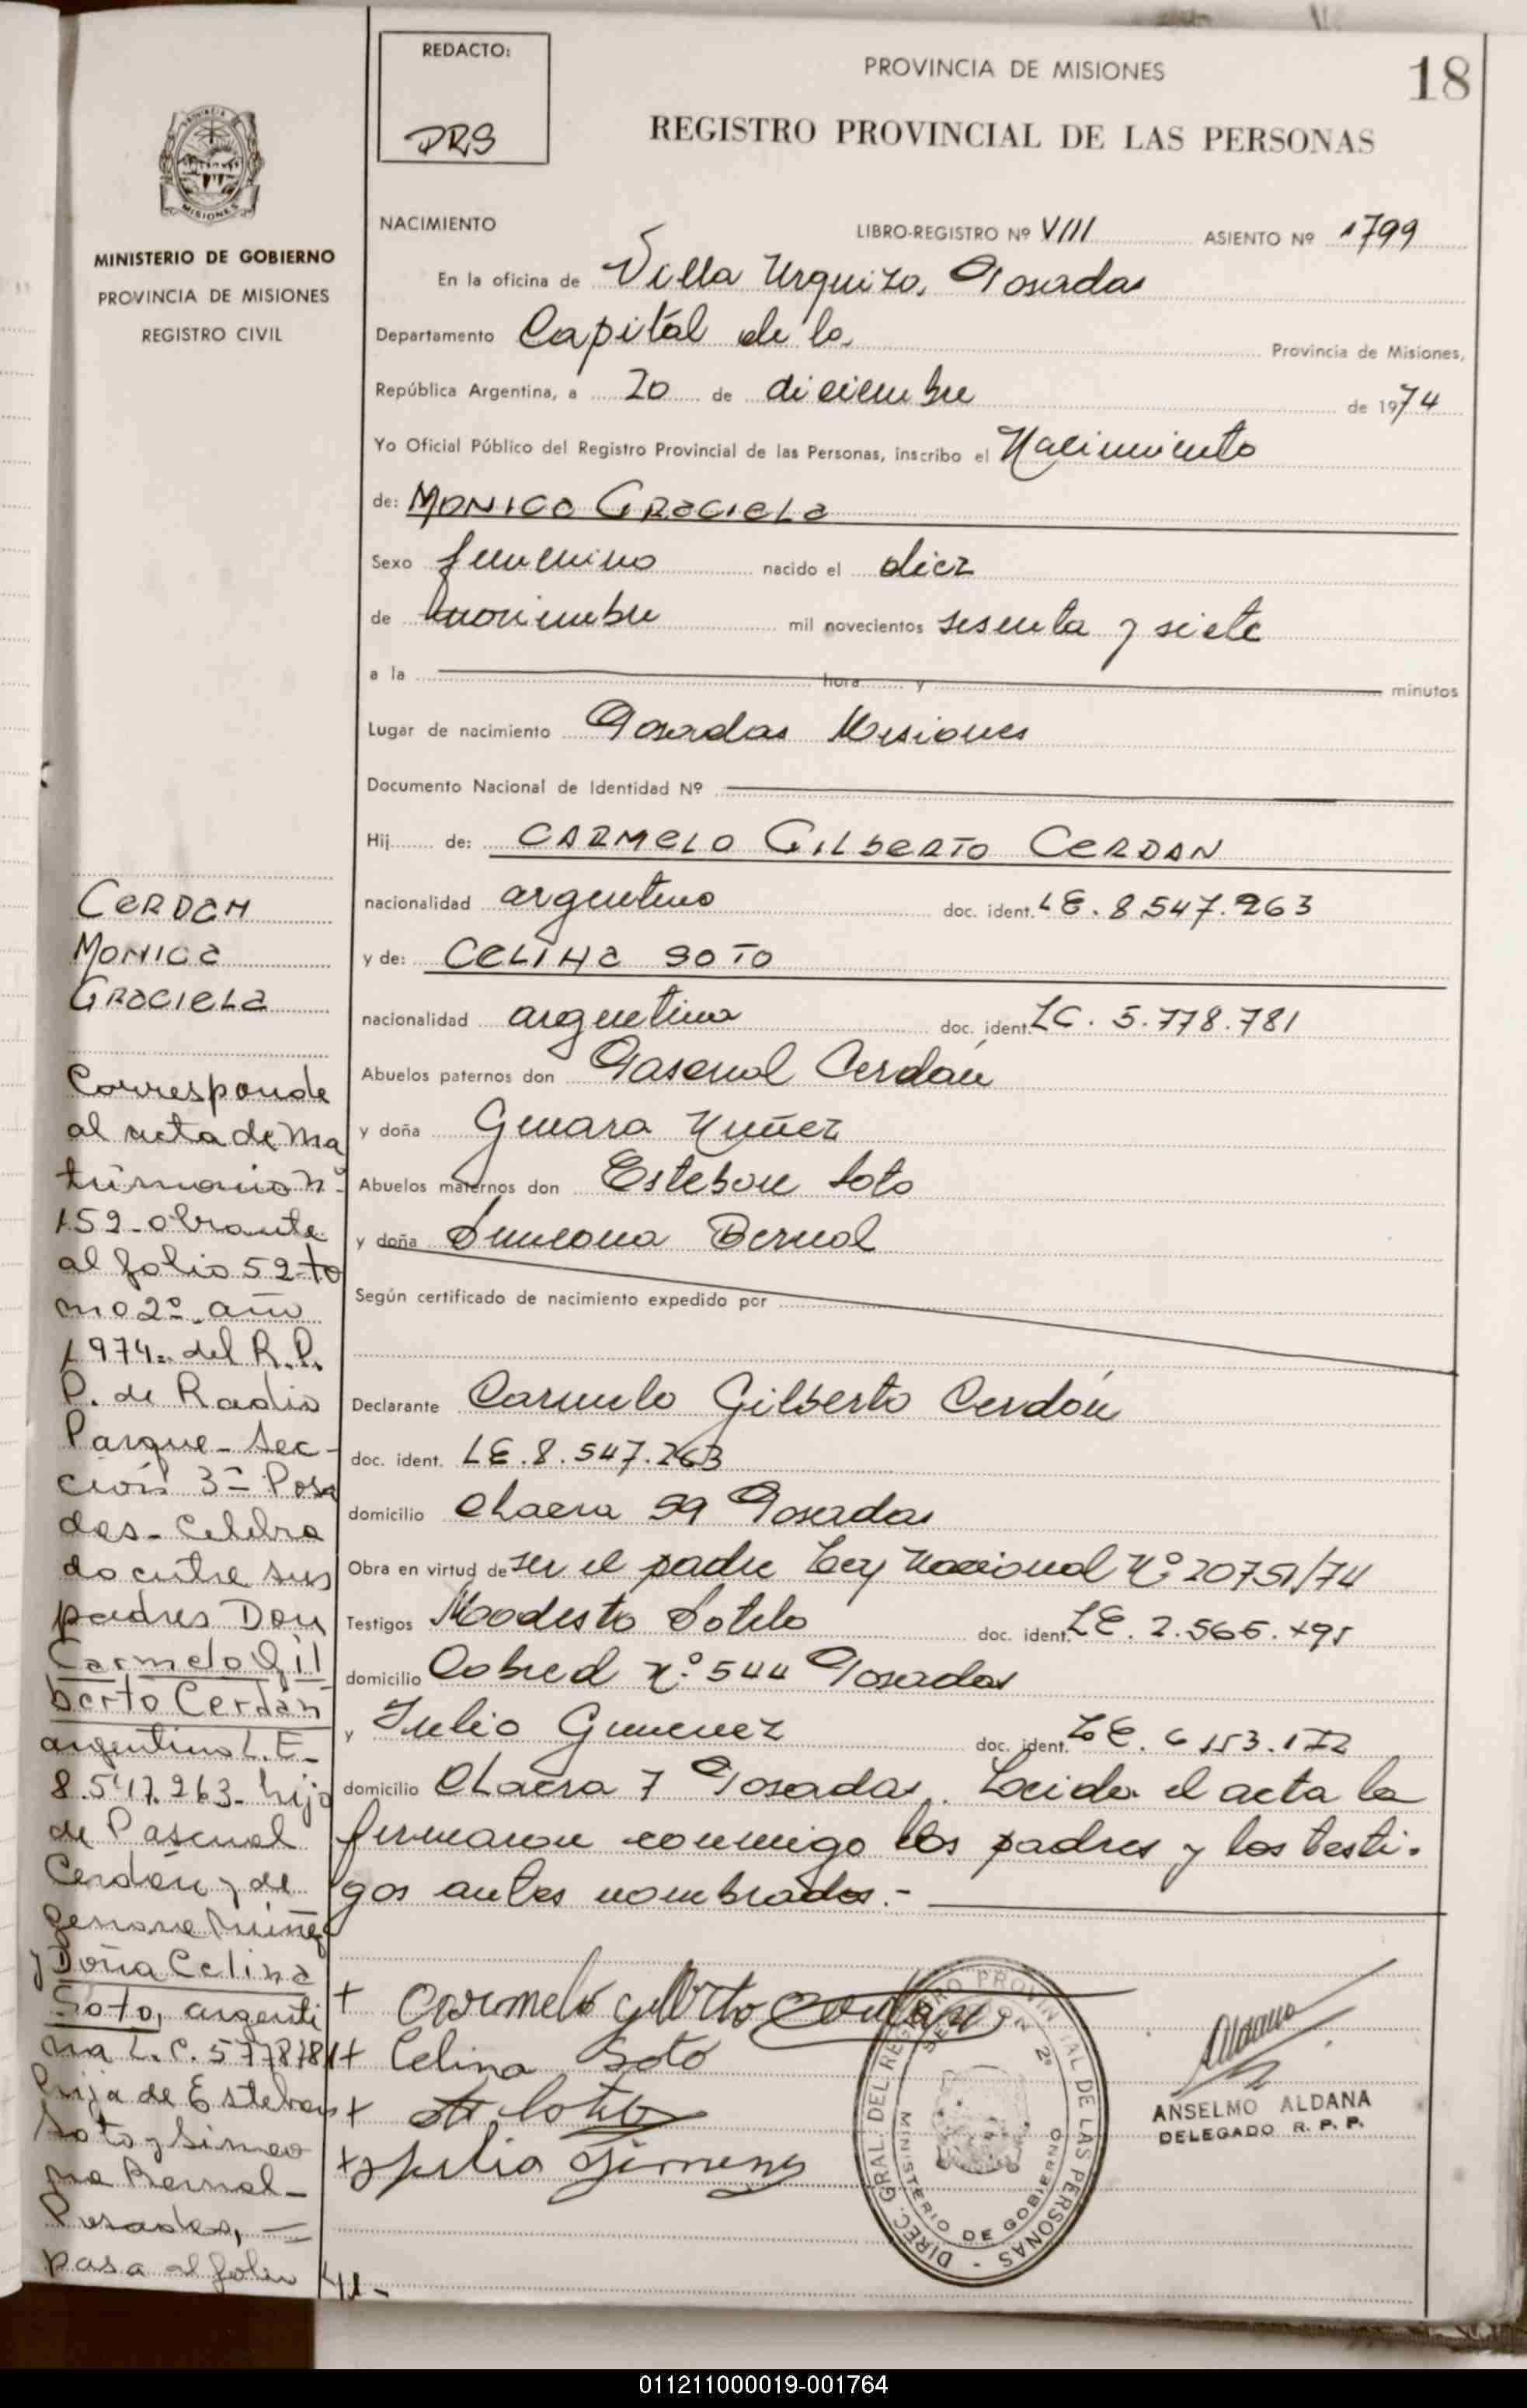 18
REDACTO:
DRS
PROVINCIA DE MISIONES
REGISTRO PROVINCIAL DE LAS PERSONAS
MISIONES
MINISTERIO DE GOBIERNO
PROVINCIA DE MISIONES
REGISTRO CIVIL
NACIMIENTO LIBRO-REGISTRO Nº VIII ASIENTO Nº 1799
En la oficina de Villa Urquiza, Posadas
Departamento Capital de la Provincia de Misiones,
República Argentina, a 20 de diciembre de 1974
Yo Oficial Público del Registro Provincial de las Personas, inscribo el Nacimiento
de: MONICA GRACIELA
Sexo femenino nacido el diez
de noviembre mil novecientos sesenta y siete
a la hora y minutos
Lugar de nacimiento Posadas Misiones
Documento Nacional de Identidad Nº
Hij de: CARMELO GILBERTO CERDAN
nacionalidad argentino doc. ident. LE. 8.547.263
y de: CELINA SOTO
nacionalidad argentina doc. ident. LC. 5.778.781
Abuelos paternos don Pascual Cerdán
y doña Genara Nuñez
Abuelos maternos don Esteban Soto
y doña Simeona Bernal
Según certificado de nacimiento expedido por
Declarante Carmelo Gilberto Cerdán
doc. ident. LE. 8.547.263
domicilio Chacra 59 Posadas
Obra en virtud de ser el padre Ley Nacional Nº 20751/74
Testigos Modesto Sotelo doc. ident. LE. 2.565.
domicilio nº 544 Posadas
y Julio Gimenez doc. ident. LE. 6 153.172
domicilio Chacra 7 Posadas. Leida el acta la
firmaron conmigo los padres y los testi-
gos antes nombrados.-
CERDAN
MONICA
GRACIELA
Corresponde
al acta de ma
trimonio nº
159 obrante
al folio 52 to
mo 2º año
1974. del R.P.
P. de Radio
Parque - Sec-
ción 3ª Posa
das - Celebra
do entre sus
padres Don
Carmelo Gil
berto Cerdán
argentino L.E.
8.547.263 - hijo
de Pascual
Cerdán y de
Genara Nuñez
y Doña Celina
Soto, argenti
na L.C. 5778781
hija de Esteban
Soto y Simeo
na Bernal -
Posadas, -
pasa al folio
+ Carmelo Gilberto Cerdan
+ Celina Soto
+ Sotelo
+ Julio Gimenez
DIREC. GRAL. DEL REGISTRO PROVINCIAL DE LAS PERSONAS -
SECCION 2ª
MINISTERIO DE GOBIERNO
Aldana
ANSELMO ALDANA
DELEGADO R. P. P.
011211000019-001764